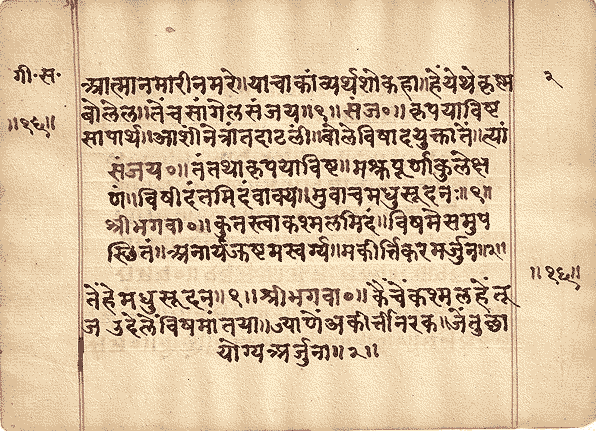 गी॰स॰
॥१६॥
आत्मानमारीनमरे॥याचाकांव्यर्थशोकहा॥हेंयेथेकृष्ण २
बोलेल॥तेंचसांगेलसंजय॥१॥संज०॥कृपयाविष्ट
सापार्थ॥आशीनेत्रांतदाटली॥बोलेविषादयुक्तातें॥त्यां
संजय०॥तंतथाकृपयाविष्ट॥मश्रुपूर्णाकुलेक्ष
णं॥विषीदंतमिदंवाक्य॥मुवाचमधुसूदनः॥१॥
श्रीभगवा०॥कुतस्त्वाकश्मलमिदं॥विषमेसमुप
स्थितं॥अनार्यजुष्टमस्वर्ग्य॥मकीर्त्तिकरमर्जुन॥२॥
॥१६॥
तेंहेमधुसूदन॥१॥श्रीभगवा०॥कैंचेकश्मलहेंतू
ज उदेलेंविषमांतया॥ज्याणेंअकीर्त्तिनरक॥
योग्यअर्जुना॥२॥